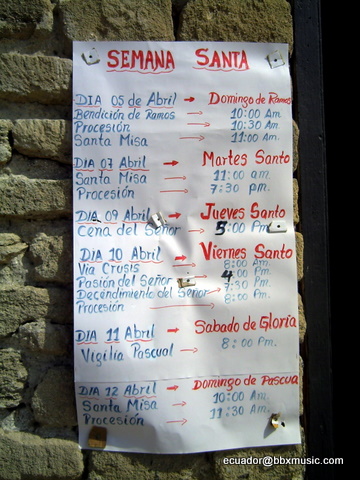 SEMANA SANTA
DIA 05 de Abril → Domingo de Ramos
Bendición de Ramos → 10:00 Am.
Procesión → 10:30 Am.
Santa Misa → 11:00 Am.
DIA 07 Abril → Martes Santo
Santa Misa → 11:00 am.
Procesión → 7:30 pm.
DIA 09 Abril → Jueves Santo
Cena del Señor → 5:00 Pm.
DIA 10 Abril → Viernes Santo
Via Crusis → 8:00 Am.
Pasión del Señor → 4:00 Pm.
Decendimiento del Señor → 7:30 Pm.
Procesión → 8:00 Pm.
DIA 11 Abril → Sabado de Gloria
Vigilia Pascual → 8:00 Pm.
DIA 12 Abril → Domingo de Pascua
Santa Misa → 10:00 Am.
Procesión → 11:30 Am.
ecuador@bbxmusic.com